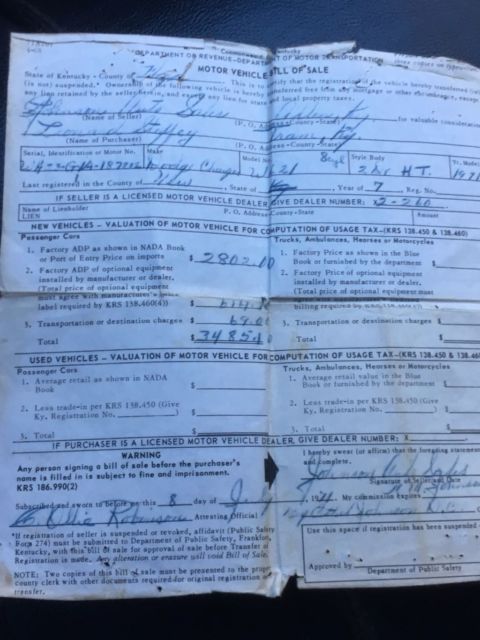 Commonwealth of Kentucky
DEPARTMENT OR REVENUE-DEPARTMENT OF MOTOR TRANSPORTATION
MOTOR VEHICLE BILL OF SALE
State of Kentucky - County of Floyd This is to certify that the registration of the vehicle hereby transferred
(is not suspended.) Ownership of the following vehicle is hereby transferred free from any mortgage or other encumbrance, except
any lien retained by the seller herein, and except any lien for state and local property taxes.
Johnson Auto Sales Ky
(Name of Seller) (P. O. Address-County-State) for valuable consideration
Ky
(Name of Purchaser) (P. O. Address-County-State)
Serial, Identification or Motor No. Make Model No. 8cyl Style Body Yr. Model
Dodge Charger 2 Dr HT. 1971
Last registered in the County of New , State of Ky , Year of 7 Reg. No.
IF SELLER IS A LICENSED MOTOR VEHICLE DEALER GIVE DEALER NUMBER: X2-260
Name of Lienholder P. O. Address-County-State Amount
LIEN
NEW VEHICLES - VALUATION OF MOTOR VEHICLE FOR COMPUTATION OF USAGE TAX-(KRS 138.450 & 138.460)
Passenger Cars
1. Factory ADP as shown in NADA
Book or Port of Entry Price on imports $ 2802.00
2. Factory ADP of optional equipment
installed by manufacturer or dealer.
(Total price of optional equipment
must agree with manufacturer's price
label required by KRS 138.460(4)) $
3. Transportation or destination charges $ 69.00
Total $ 3485.10
Trucks, Ambulances, Hearses or Motorcycles
1. Factory Price as shown in the Blue
Book or furnished by the department $
2. Factory Price of optional equipment
installed by manufacturer or dealer.
(Total price of optional equipment must
billing required by KRS
3. Transportation or destination charges $
Total $
USED VEHICLES - VALUATION OF MOTOR VEHICLE FOR COMPUTATION OF USAGE TAX-(KRS 138.450 & 138.460
Passenger Cars
1. Average retail as shown in NADA
Book $
2. Less trade-in per KRS 138.450 (Give
Ky, Registration No. ) $
3. Total $
Trucks, Ambulances, Hearses or Motorcycles
1. Average retail value in the Blue
Book or furnished by the department $
2. Less trade-in per KRS 138.450 (Give
Ky. Registration No. ) $
3. Total $
IF PURCHASER IS A LICENSED MOTOR VEHICLE DEALER, GIVE DEALER NUMBER: X
WARNING
Any person signing a bill of sale before the purchaser's
name is filled in is subject to fine and imprisonment.
KRS 186.990(2)
I hereby swear (or affirm) that the foregoing statement
and complete.
Johnson Auto Sales
Signature of Seller and Date
Subscribed and sworn to before me this 8 day of July 1971 My commission expires
Ollie Robinson Attesting Official
*If registration of seller is suspended or revoked, affidavit (Public Safety
Form 274) must be submitted to Department of Public Safety, Frankfort,
Kentucky, with this bill of sale for approval of sale before Transfer of
Registration is made. Any alteration or erasure will void Bill of Sale.
NOTE: Two copies of this bill of sale must be presented to the proper
county clerk with other documents required for original registration or
transfer.
Use this space if registration has been suspended
Approved by
Department of Public Safety